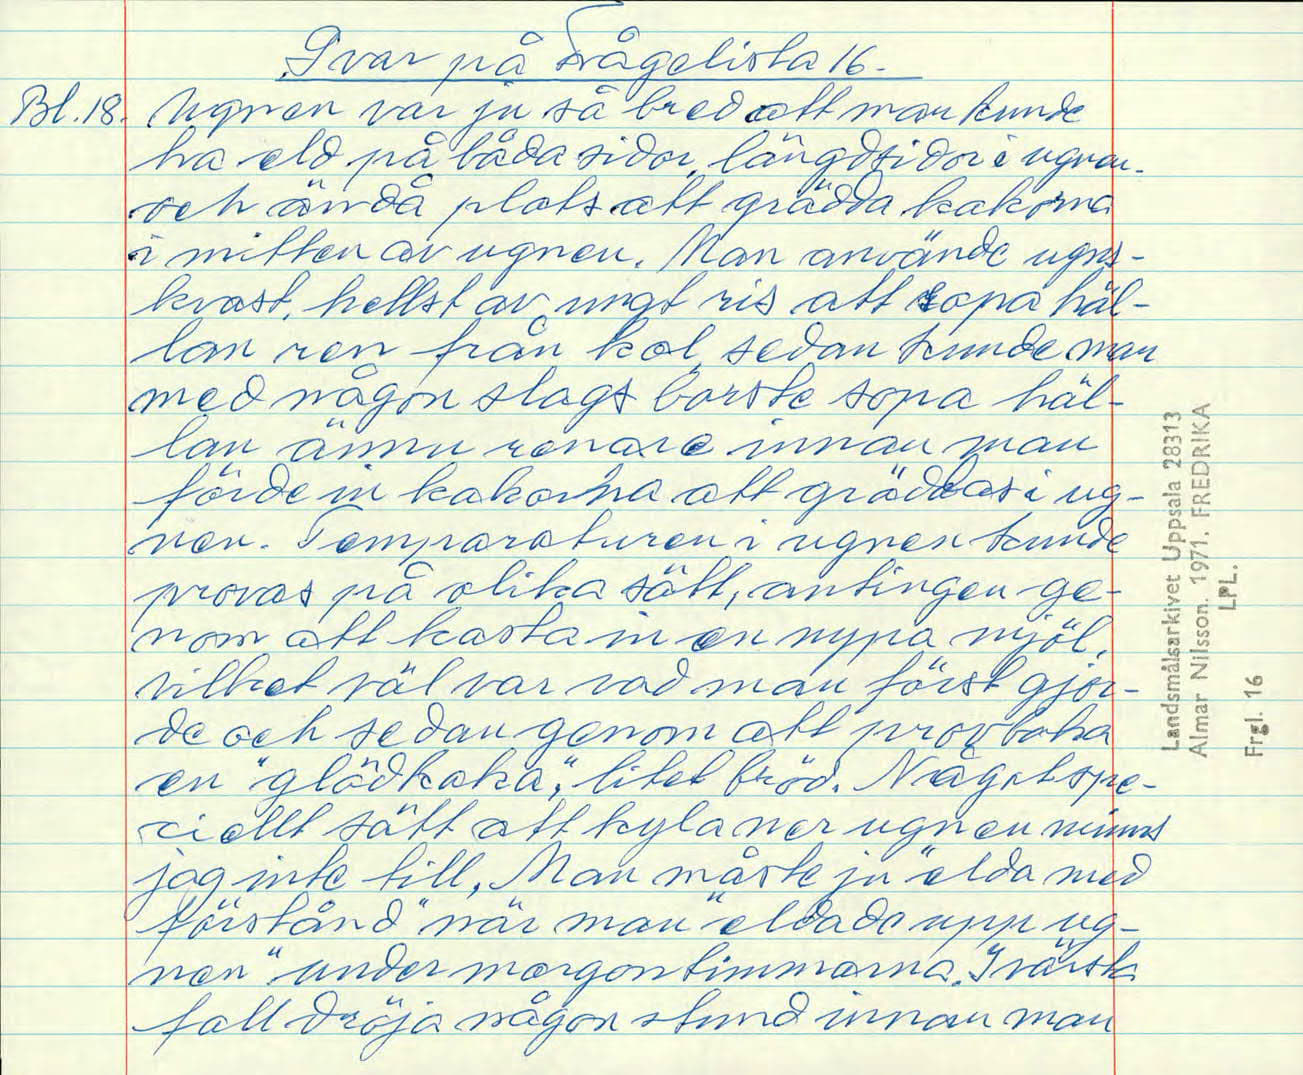 Svar på Frågelista 16.
Bl. 18. Ugnen var ju så bred att man kunde
ha eld på båda sidor, längdsidor i ugnen.
och ändå plats att grädda kakorna
i mitten av ugnen. Man använde ugns-
kvast, hellst av ungt ris att sopa häl-
lan ren från kol, sedan kunde man
med någon slags borste sopa häl-
lan ännu renare innan man
förde in kakorna att gräddas i ug-
nen. Temparaturen i ugnen kunde
provas på olika sätt, antingen ge-
nom att kasta in en nypa mjöl,
vilket väl var vad man först gjor-
de och sedan genom att provbaka
en "glödkaka", litet bröd. Något spe-
ciellt sätt att kyla ner ugnen minns
jag inte till, Man måste ju "elda med
förstånd" när man "eldade upp ug-
nen" under morgontimmarna. I värsta
fall dröja någon stund innan man
Landsmålsarkivet Uppsala 28313
Almar Nilsson. 1971. FREDRIKA
LPL.
Frgl. 16